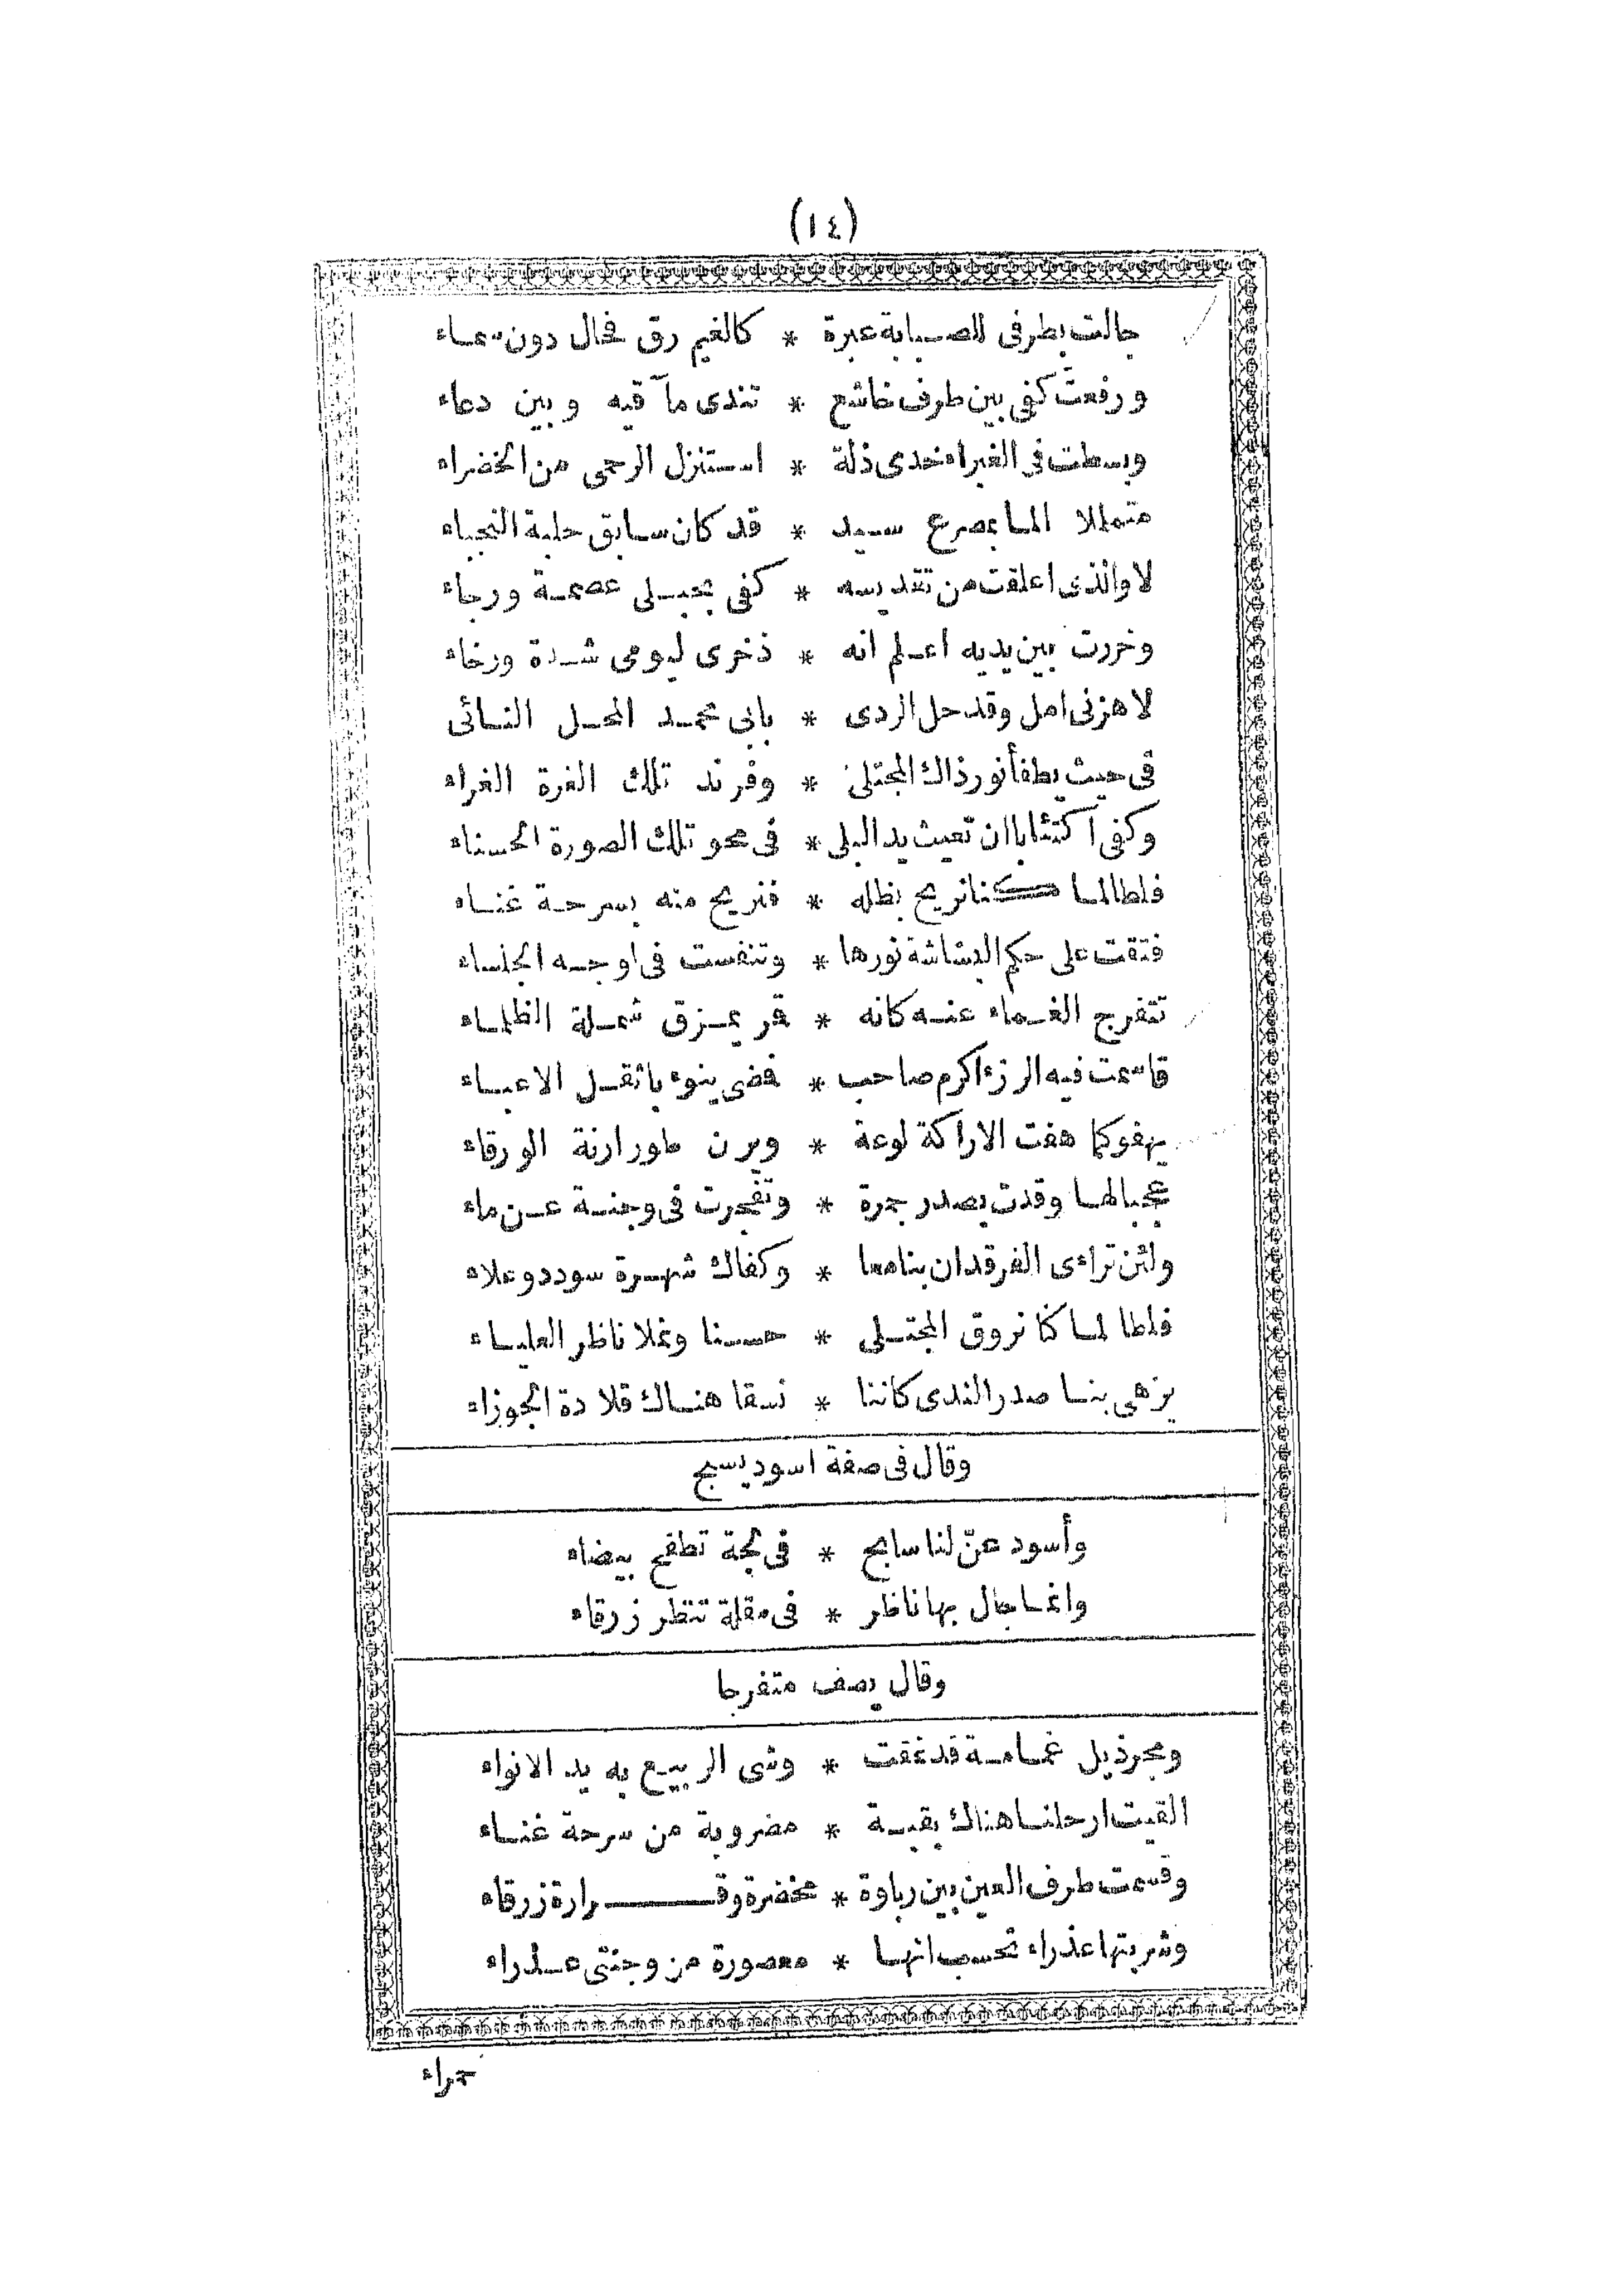 (١٤)
جالت بطرفى للصبابة عبرة * كالغيم رق فحال دون سماء
ورفعت كفى بين طرف خاشع * تندى مآقيه وبين دعاء
وبسطت فى الغبراء خدى ذلة * استنزل الرحمى من الخضراء
متململا الما بمصرع سيد * قد كان سابق حلبة النجباء
لا والذى اعلقت من تقديسه * كفى بحبلى عصمة ورجاء
وخررت بين يديه اعلم انه * ذخرى ليومى شدة ورخاء
لا هزنى امل وقد حل الردى * بابى محمد المحل النائى
فى حيث يطفأ نور ذاك المجتلى * وفرند تلك الغرة الغراء
وكفى اكتئابا ان تعيث يد البلى * فى محو تلك الصورة الحسناء
فلطالما كنا نريح بظله * فنريح منه بسرحة غناء
فتقت على حكم البشاشة نورها * وتنفست فى اوجه الجلساء
تتفرج الغماء عنه كانه * قمر يمزق شملة الظلماء
قاسمت فيه الرزء اكرم صاحب * فمضى ينوء باثقل الاعباء
يهفو كما هفت الاراكة لوعة * ويرن طورا رنة الورقاء
عجبا لها وقدت بصدر جمرة * وتفجرت فى وجنة عن ماء
ولئن تراءى الفرقدان بنا معا * وكفاك شهرة سودد وعلاء
فلطالما كنا نروق المجتلى * حسنا ونملا ناظر العلياء
يزهى بنا صدر الندى كاننا * نسقا هناك قلادة الجوزاء
وقال فى صفة اسود يسبح
وأسود عنّ لنا سابح * فى لجة تطفح بيضاء
وانما جال بها ناظر * فى مقلة تنظر زرقاء
وقال يصف متفرجا
ومجر ذيل غمامة قد نمقت * وشى الربيع به يد الانواء
القيت ارحلنا هناك بقبة * مضروبة من سرحة غناء
وقسمت طرف العين بين رباوة * مخضرة وقرارة زرقاء
وشربتها عذراء تحسب انها * معصورة من وجنتى عذراء
حمراء